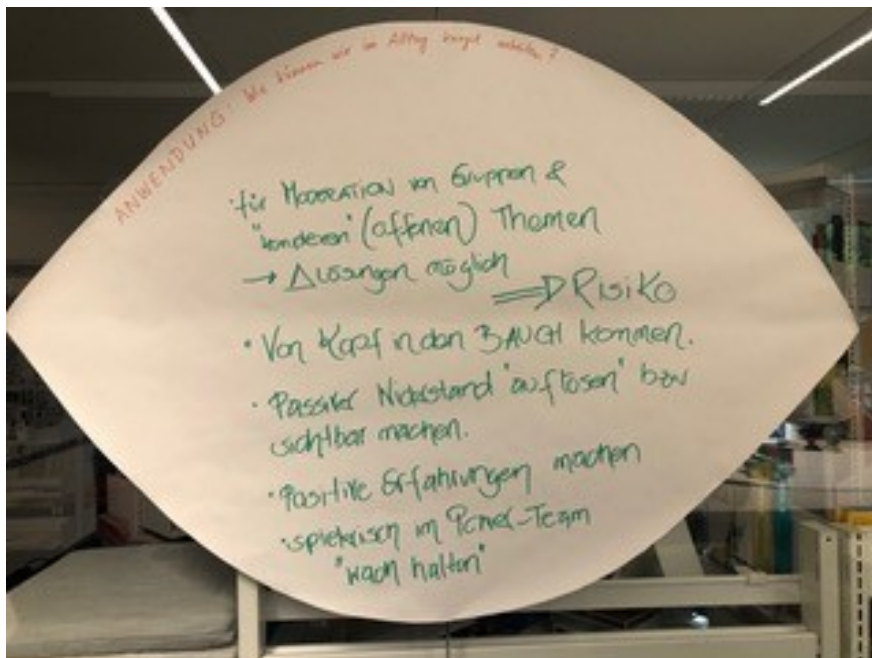 ANWENDUNG: Wie können wir im Alltag damit arbeiten?
• für MODERATION von Gruppen &
(offenen) Themen
→ Δ Lösungen möglich
⇒ RISIKO
• Von Kopf in den BAUCH kommen.
• Passiver Widerstand "auflösen" bzw
sichtbar machen.
• Positive Erfahrungen machen
• spielerisch im Power-Team
"wach halten"